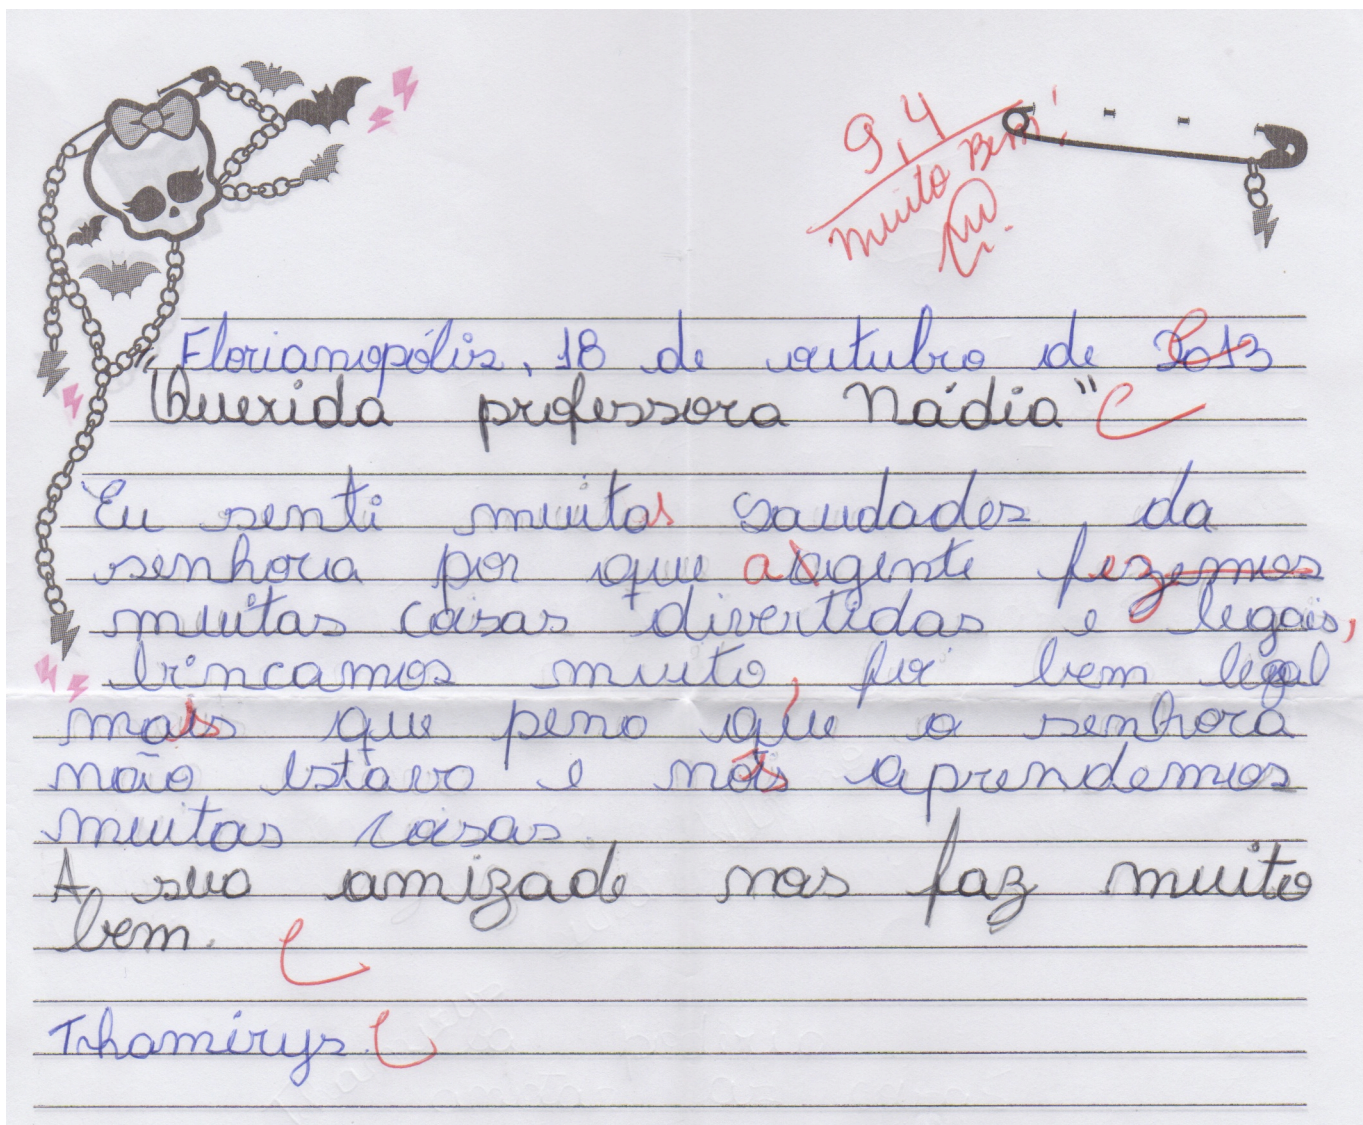 9,4
Muito Bem!
Florianopólis, 18 de outubro de 2013
"Querida professora Nádia"
Eu senti muitas saudades da
senhora por que a agente fezemos
muitas coisas divertidas e legais,
brincamos muito, foi bem legal
mais que pena que a senhora
não estava e nós aprendemos
muitas coisas.
A sua amizade nos faz muito
bem.
Thamirys.